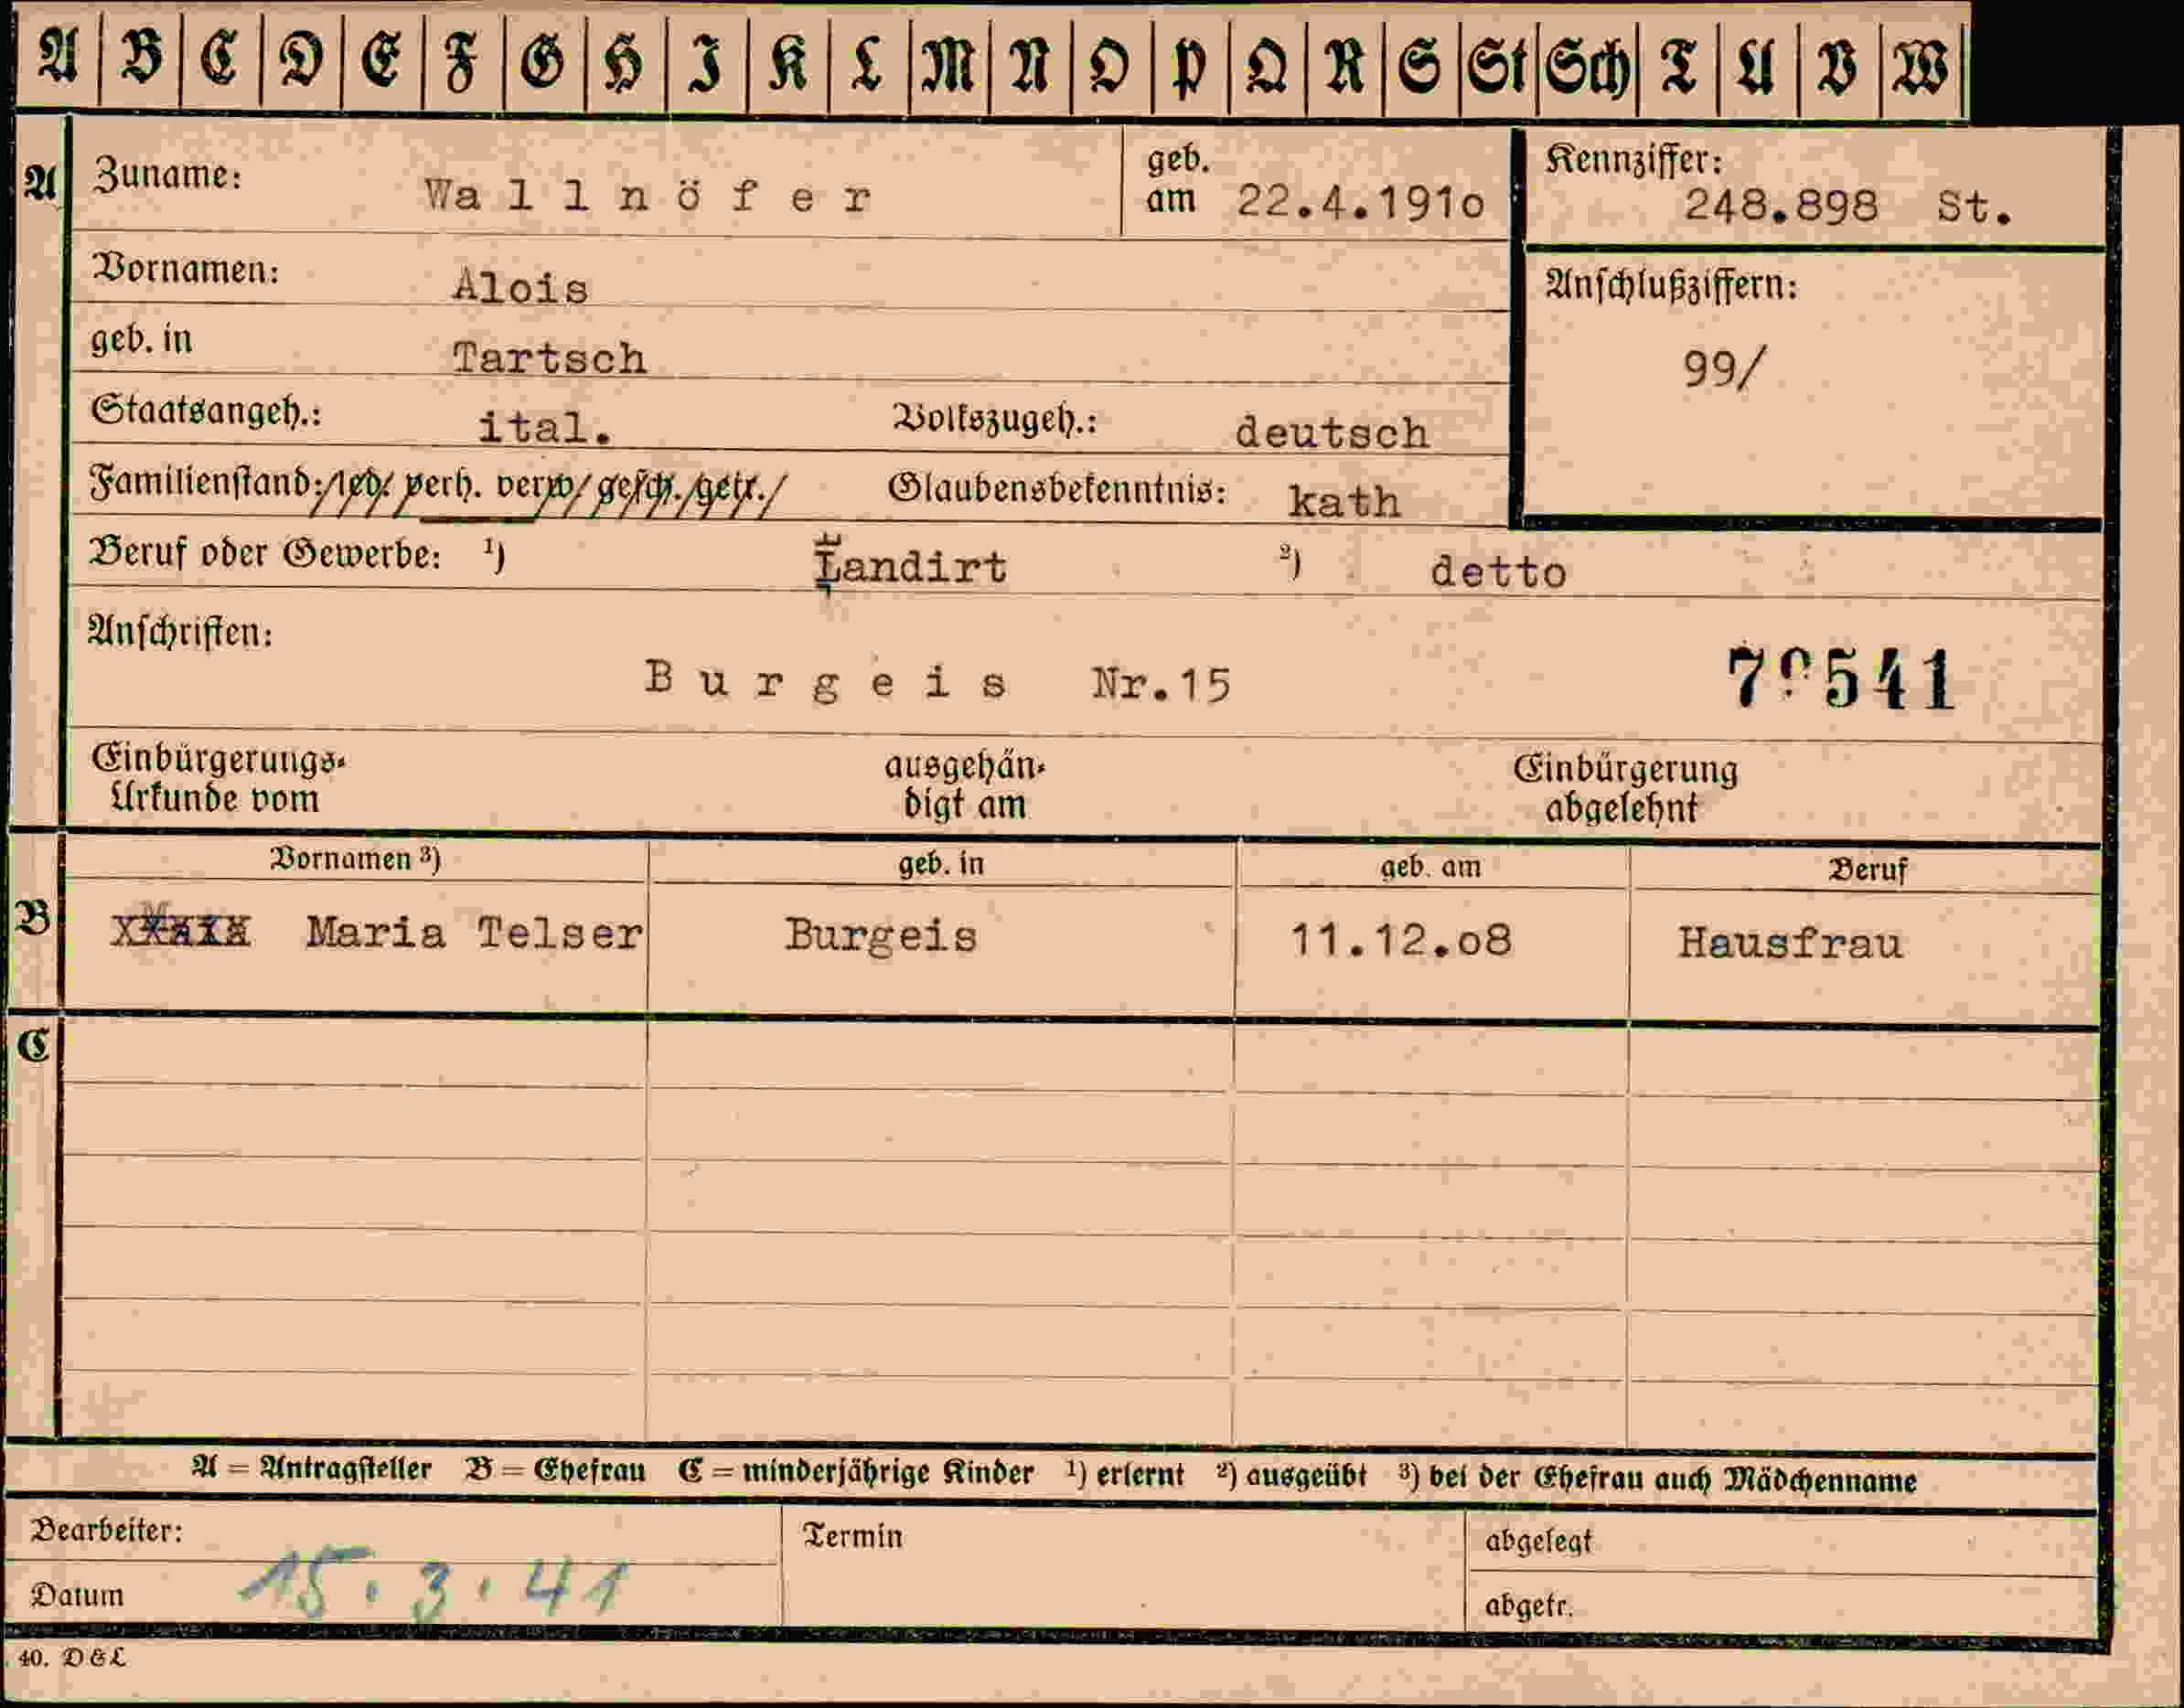 A B C D E F G H I K L M N O P Q R S St Sch T U V W
A Zuname: Wallnöfer geb. am 22.4.191o Kennziffer: 248.898 St.
Vornamen: Alois Anschlußziffern:
geb. in Tartsch 99/
Staatsangeh.: ital. Volkszugeh.: deutsch
Familienstand: led. verh. verw. gesch. getr. Glaubensbekenntnis: kath
Beruf oder Gewerbe: ¹) Landirt ²) detto
Anschriften:
Burgeis Nr.15
Einbürgerungs- ausgehän- Einbürgerung
Urkunde vom digt am abgelehnt
Vornamen ³) geb. in geb. am Beruf
B Maria Telser Burgeis 11.12.o8 Hausfrau
C
A = Antragsteller B = Ehefrau C = minderjährige Kinder ¹) erlernt ²) ausgeübt ³) bei der Ehefrau auch Mädchenname
Bearbeiter: Termin abgelegt
Datum 15.3.41 abgetr.
40. D & L